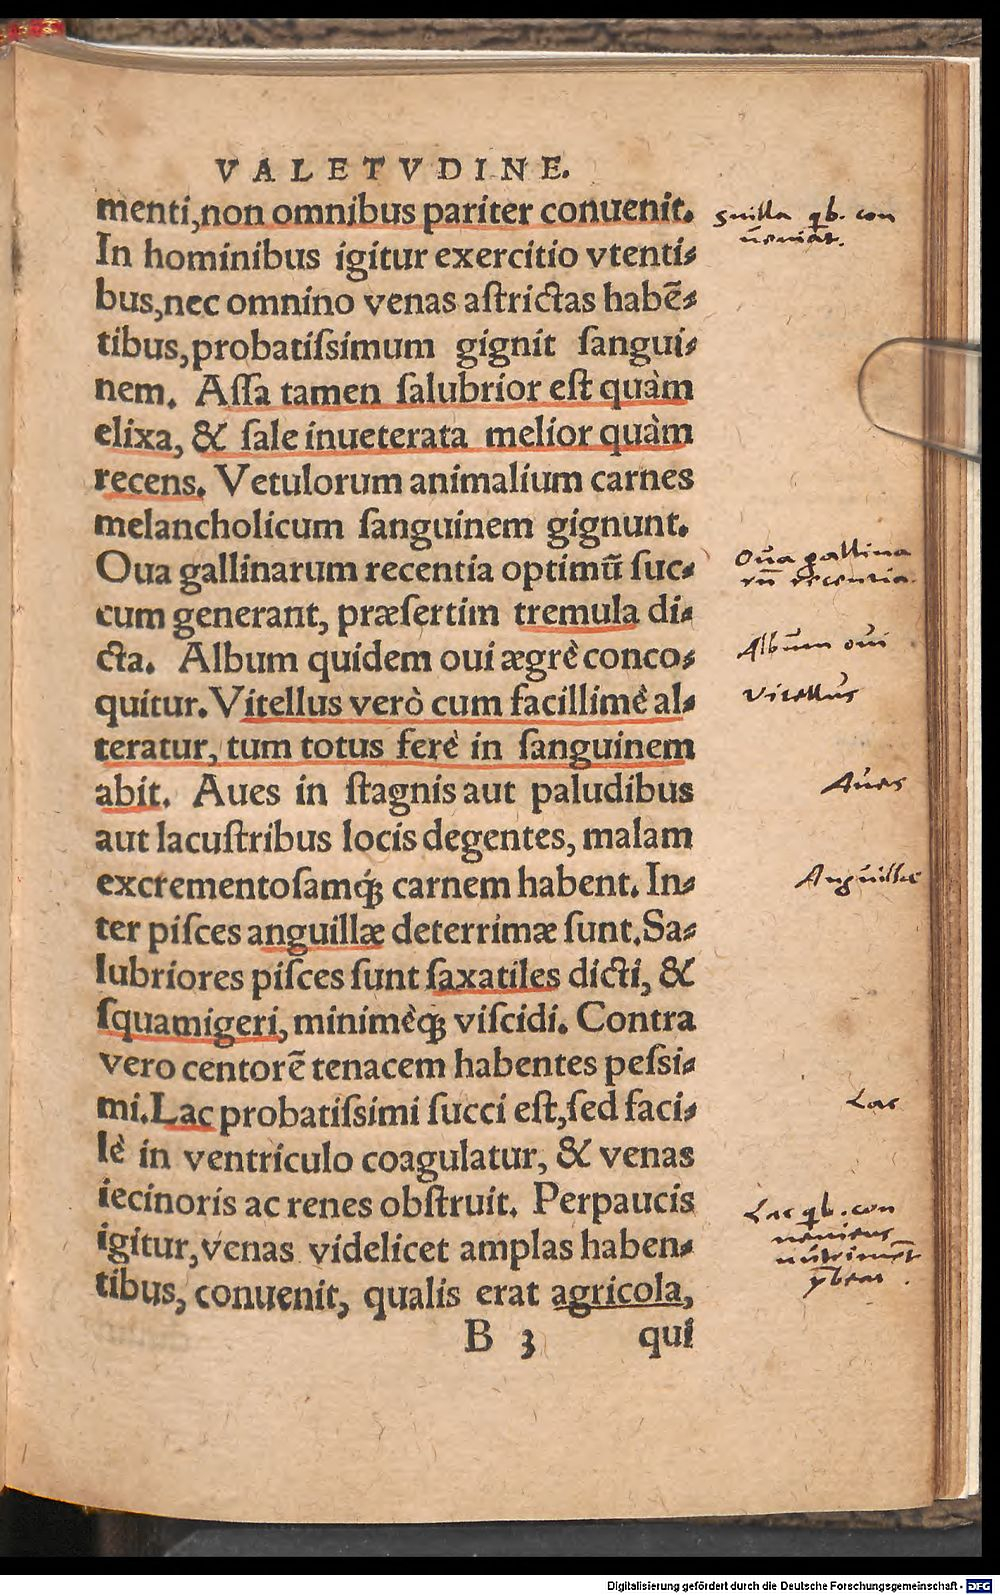 VALETVDINE.
menti, non omnibus pariter conuenit.
In hominibus igitur exercitio vtenti-
bus, nec omnino venas aſtrictas habē-
tibus, probatiſsimum gignit ſangui-
nem. Aſſa tamen ſalubrior eſt quàm
elixa, & ſale inueterata melior quàm
recens. Vetulorum animalium carnes
melancholicum ſanguinem gignunt.
Oua gallinarum recentia optimū ſuc-
cum generant, præſertim tremula di-
cta. Album quidem oui ægrè conco-
quitur. Vitellus verò cum facillimè al-
teratur, tum totus ferè in ſanguinem
abit. Aues in ſtagnis aut paludibus
aut lacuſtribus locis degentes, malam
excrementoſamq́; carnem habent. In-
ter piſces anguillæ deterrimæ ſunt. Sa-
lubriores piſces ſunt ſaxatiles dicti, &
ſquamigeri, minimèq́; viſcidi. Contra
vero centorē tenacem habentes peſsi-
mi. Lac probatiſsimi ſucci eſt, ſed faci-
lè in ventriculo coagulatur, & venas
iecinoris ac renes obſtruit. Perpaucis
igitur, venas videlicet amplas haben-
tibus, conuenit, qualis erat agricola,
B 3 qui
Suilla qb. con
ueniat.
Oua gallina
rū recentia.
Album oui
Vitellus
Aues
Anguillæ
Lac
Lac qb. con
ueniens
Digitalisierung gefördert durch die Deutsche Forschungsgemeinschaft - DFG